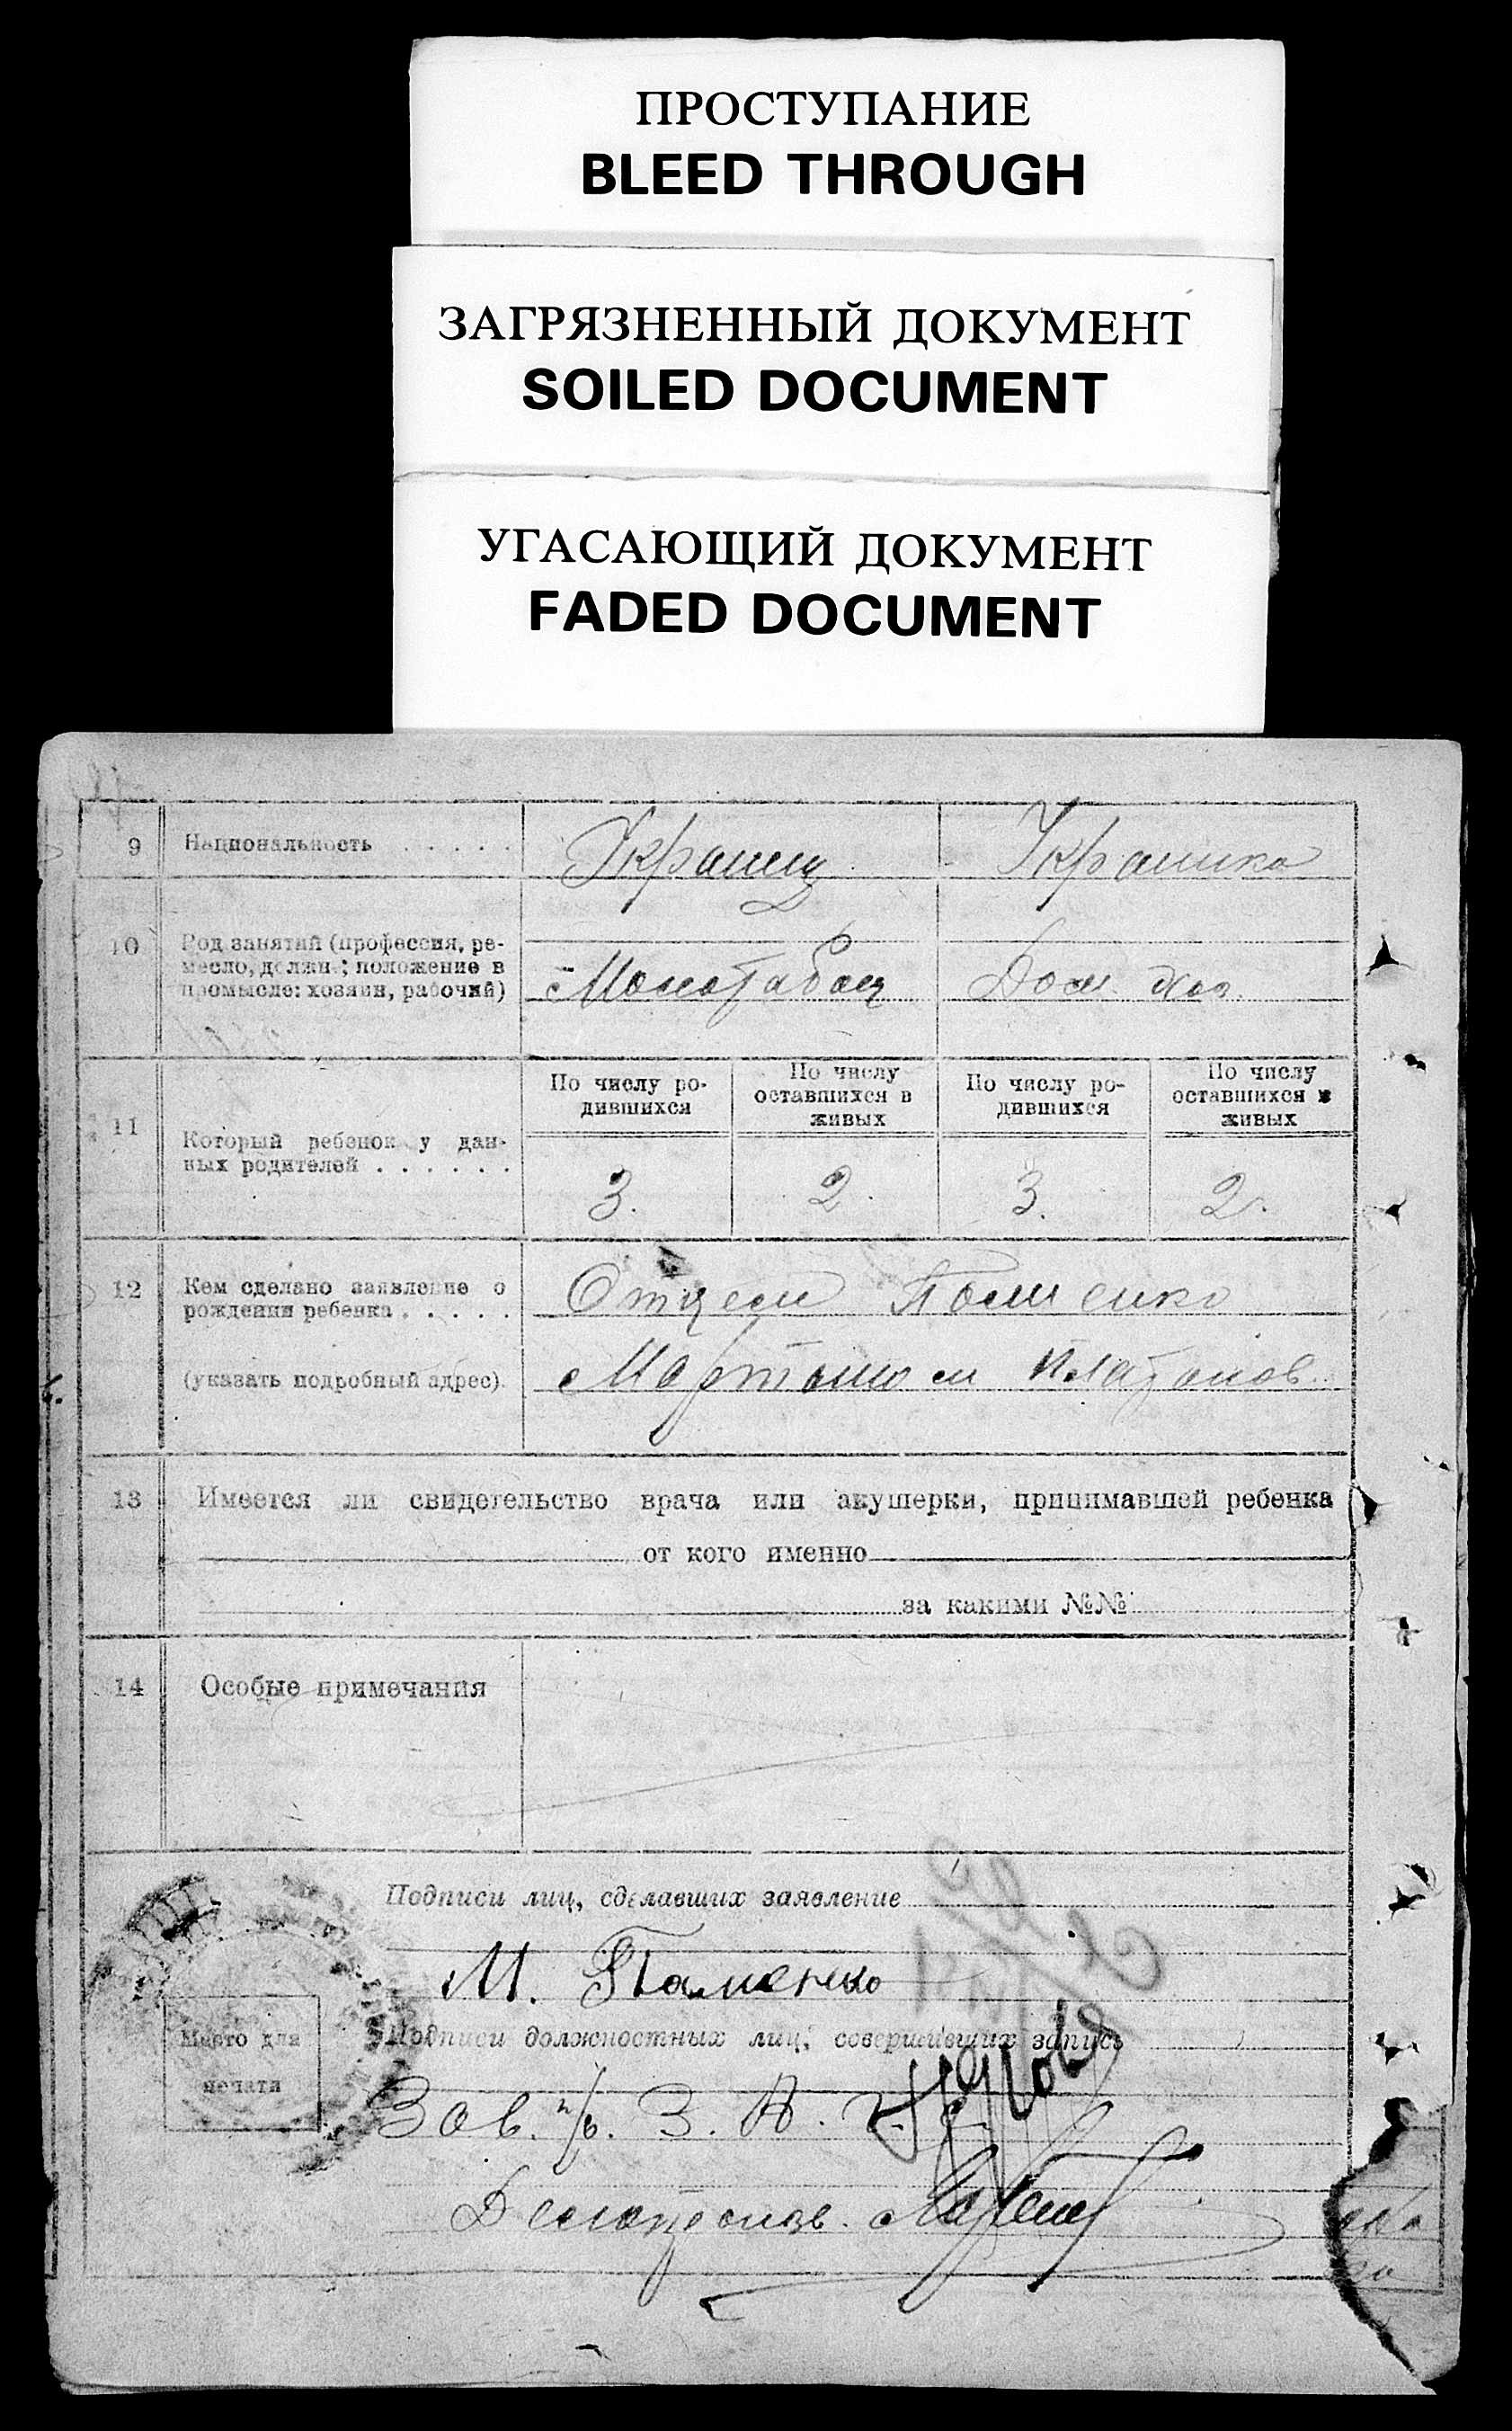 ПРОСТУПАНИЕ
BLEED THROUGH
ЗАГРЯЗНЕННЫЙ ДОКУМЕНТ
SOILED DOCUMENT
УГАСАЮЩИЙ ДОКУМЕНТ
FADED DOCUMENT
9 Национальность . . . . . Украинец Украинка
10 Род занятий (профессия, ре-
месло, должн.; положение в
промысле: хозяин, рабочий) Дом. хоз.
11 Который ребенок у дан-
ных родителей . . . . . .
По числу ро-
дившихся
По числу
оставшихся в
живых
По числу ро-
дившихся
По числу
оставшихся в
живых
3. 2. 3. 2.
12 Кем сделано заявление о
рождении ребенка . . . . . Отцем
(указать подробный адрес). Мартыном Платонов.
13 Имеется ли свидетельство врача или акушерки, принимавшей ребенка
от кого именно
за какими №№
14 Особые примечания
Подписи лиц, сделавших заявление
М.
Место для
печати
Подписи должностных лиц, совершивших запись
Зав. п/б. З. А.
Делопроизв.